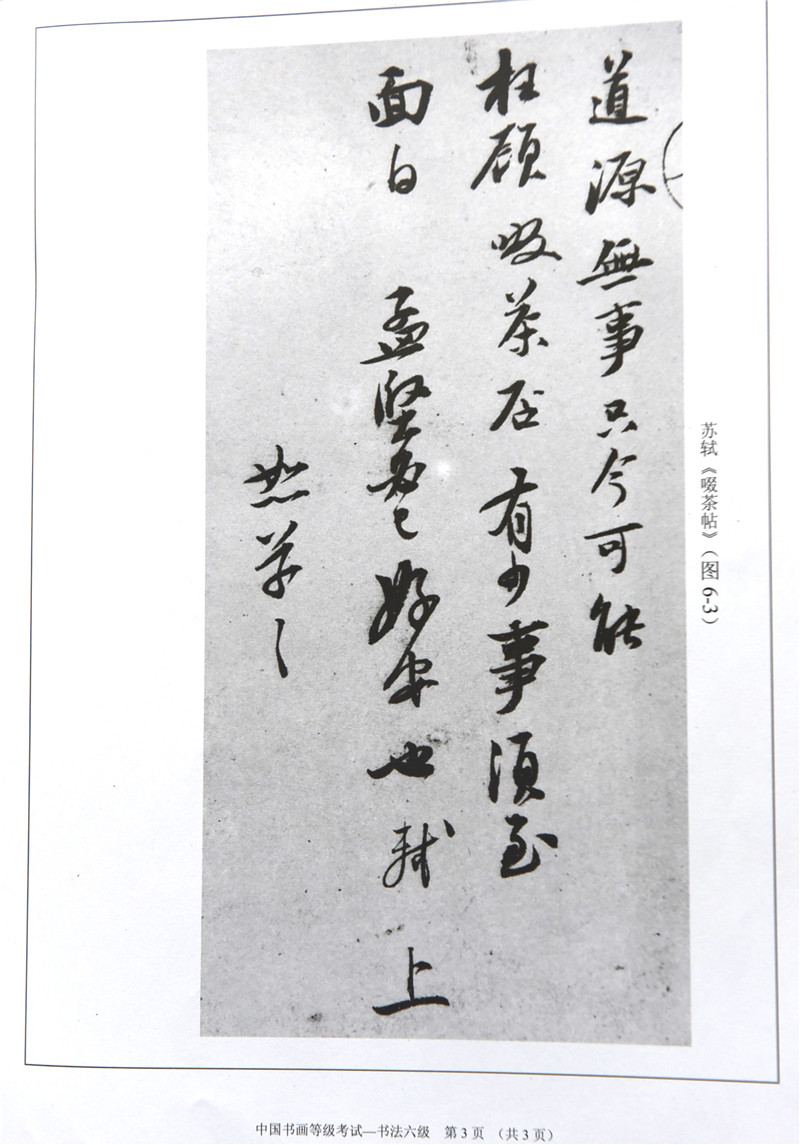 苏轼《啜茶帖》(图6-3)
道源無事只今可能
枉顧啜茶否有少事須至
面白 孟堅必已好安也軾上
恕草々
中国书画等级考试—书法六级 第3页 (共3页)